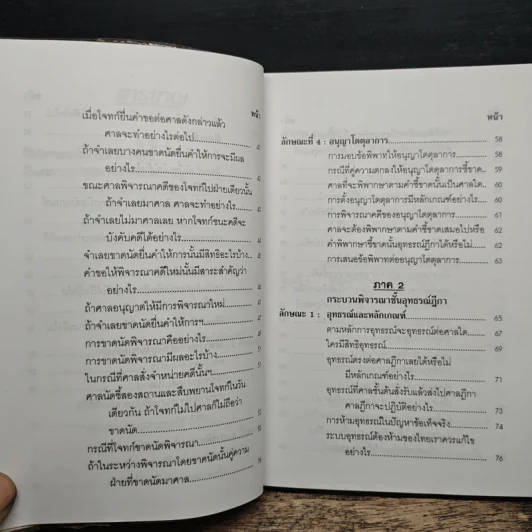 หน้า
เมื่อโจทก์ยื่นคำขอต่อศาลดังกล่าวแล้ว
ศาลจะทำอย่างไรต่อไป
ถ้าจำเลยบางคนขาดนัดยื่นคำให้การจะมีผล
อย่างไร
ขณะศาลพิจารณาคดีของโจทก์ไปฝ่ายเดียวนั้น
ถ้าจำเลยมาศาล ศาลจะทำอย่างไร
ถ้าจำเลยไม่มาศาลเลย หากโจทก์ชนะคดีจะ
บังคับคดีได้อย่างไร
จำเลยขาดนัดยื่นคำให้การนั้นมีสิทธิอะไรบ้าง
คำขอให้พิจารณาคดีใหม่นั้นมีสาระสำคัญว่า
อย่างไร
ถ้าศาลอนุญาตให้มีการพิจารณาใหม่
ถ้าจำเลยขาดนัดยื่นคำให้การฯ
การขาดนัดพิจารณาคืออย่างไร
การขาดนัดพิจารณามีผลอะไรบ้าง
ในกรณีที่ศาลสั่งจำหน่ายคดีนั้นฯ
ศาลนัดชี้สองสถานและสืบพยานโจทก์ในวัน
เดียวกัน ถ้าโจทก์ไม่ไปศาลก็ไม่ถือว่า
ขาดนัด
กรณีที่โจทก์ขาดนัดพิจารณา
ถ้าในระหว่างพิจารณาโดยขาดนัดนั้นคู่ความ
ฝ่ายที่ขาดนัดมาศาล
หน้า
ลักษณะที่ 4 : อนุญาโตตุลาการ 58
การมอบข้อพิพาทให้อนุญาโตตุลาการ 58
กรณีที่คู่ความตกลงให้อนุญาโตตุลาการชี้ขาด
ศาลที่จะพิพากษาตามคำชี้ขาดนั้นเป็นศาลใด 60
การตั้งอนุญาโตตุลาการมีหลักเกณฑ์อย่างไร 60
การพิจารณาคดีของอนุญาโตตุลาการ 61
ศาลจะต้องพิพากษาตามคำชี้ขาดเสมอไปหรือ 62
คำพิพากษาชี้ขาดนั้นอุทธรณ์ฎีกาได้หรือไม่ 62
การเสนอข้อพิพาทต่ออนุญาโตตุลาการ 63
ภาค 2
กระบวนพิจารณาชั้นอุทธรณ์ฎีกา
ลักษณะ 1 : อุทธรณ์และหลักเกณฑ์ 65
ตามหลักการอุทธรณ์จะอุทธรณ์ต่อศาลใด 67
ใครมีสิทธิอุทธรณ์ 69
อุทธรณ์ตรงต่อศาลฎีกาเลยได้หรือไม่
มีหลักเกณฑ์อย่างไร 71
อุทธรณ์ที่ศาลชั้นต้นสั่งรับแล้วส่งไปศาลฎีกา
ศาลฎีกาจะปฏิบัติอย่างไร 73
การห้ามอุทธรณ์ในปัญหาข้อเท็จจริง 74
ระบบอุทธรณ์ต้องห้ามของไทยเราควรแก้ไข
อย่างไร 76